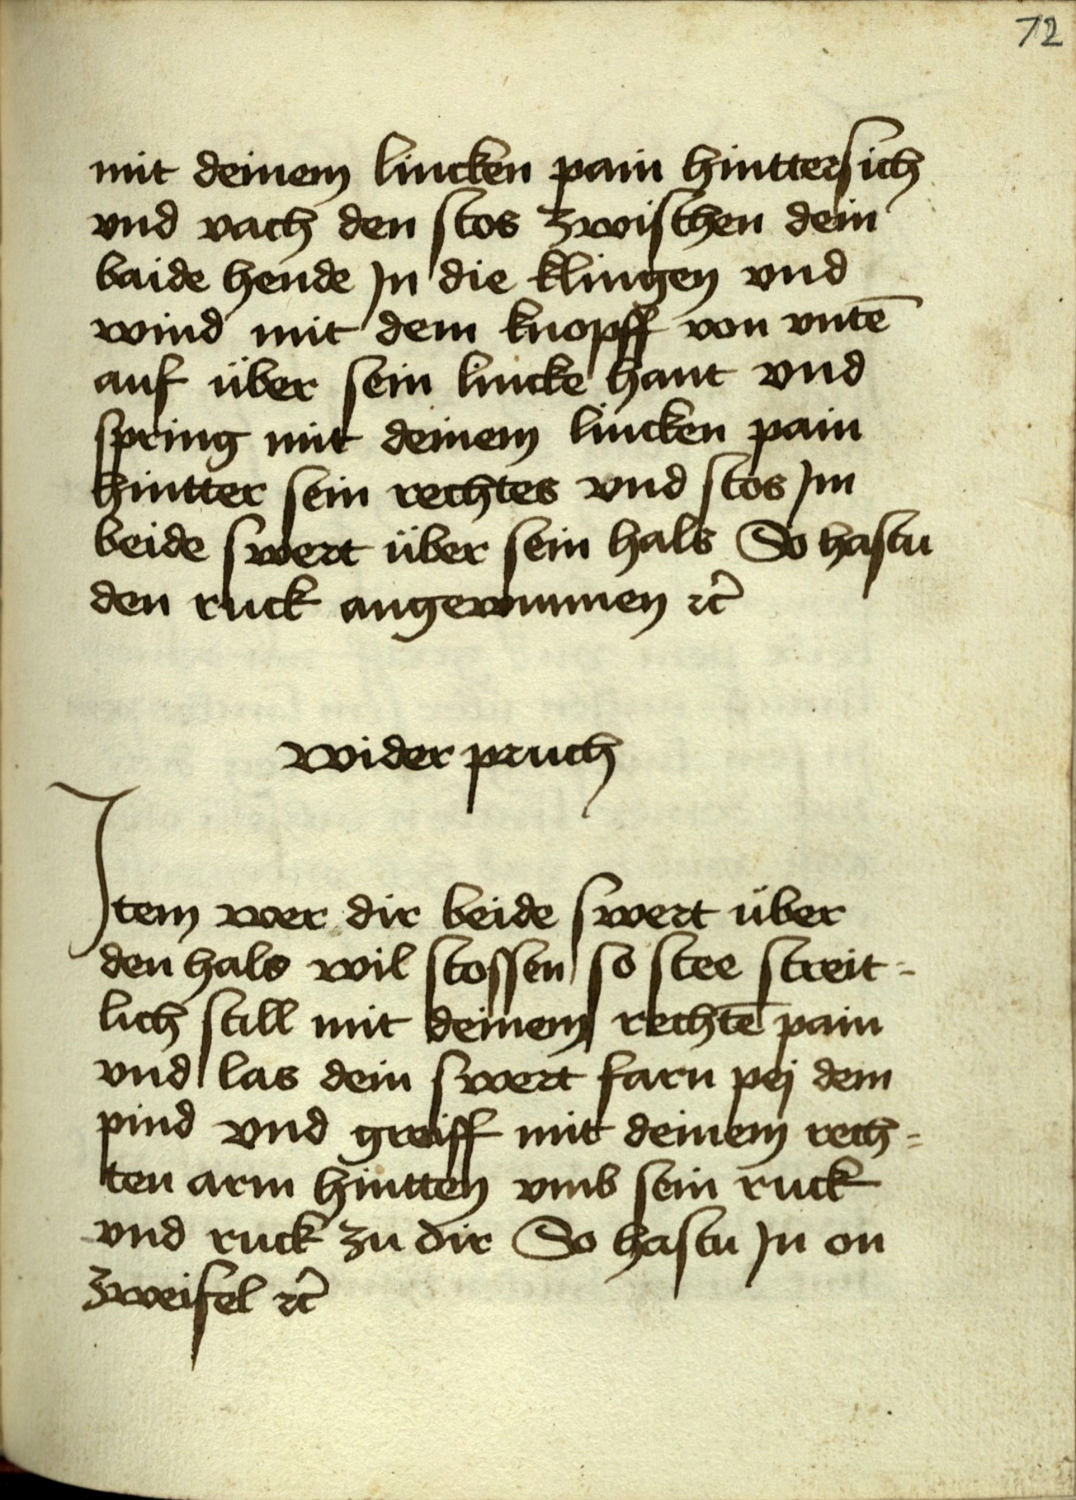 72
mit deinem lincken pain hinttersich
vnd vach den stos zwischen dein
baide hende Jn die klingen vnd
wind mit dem knopff von vntē
auf über sein lincke hant vnd
spring mit deinem lincken pain
hintter sein rechtes vnd stos Jm
beide swert über sein hals So hastu
den ruck angewunnen ꝛc̄
wider pruch
Jtem wer dir beide swert über
den hals wil stossen so stee streit-
lich still mit deinem rechtē pain
vnd las dein swert farn pej dem
pind vnd greiff mit deinem rech=
ten arm hintten vmb sein ruck
vnd ruck zu dir So hastu Jn on
zweifel ꝛc̄